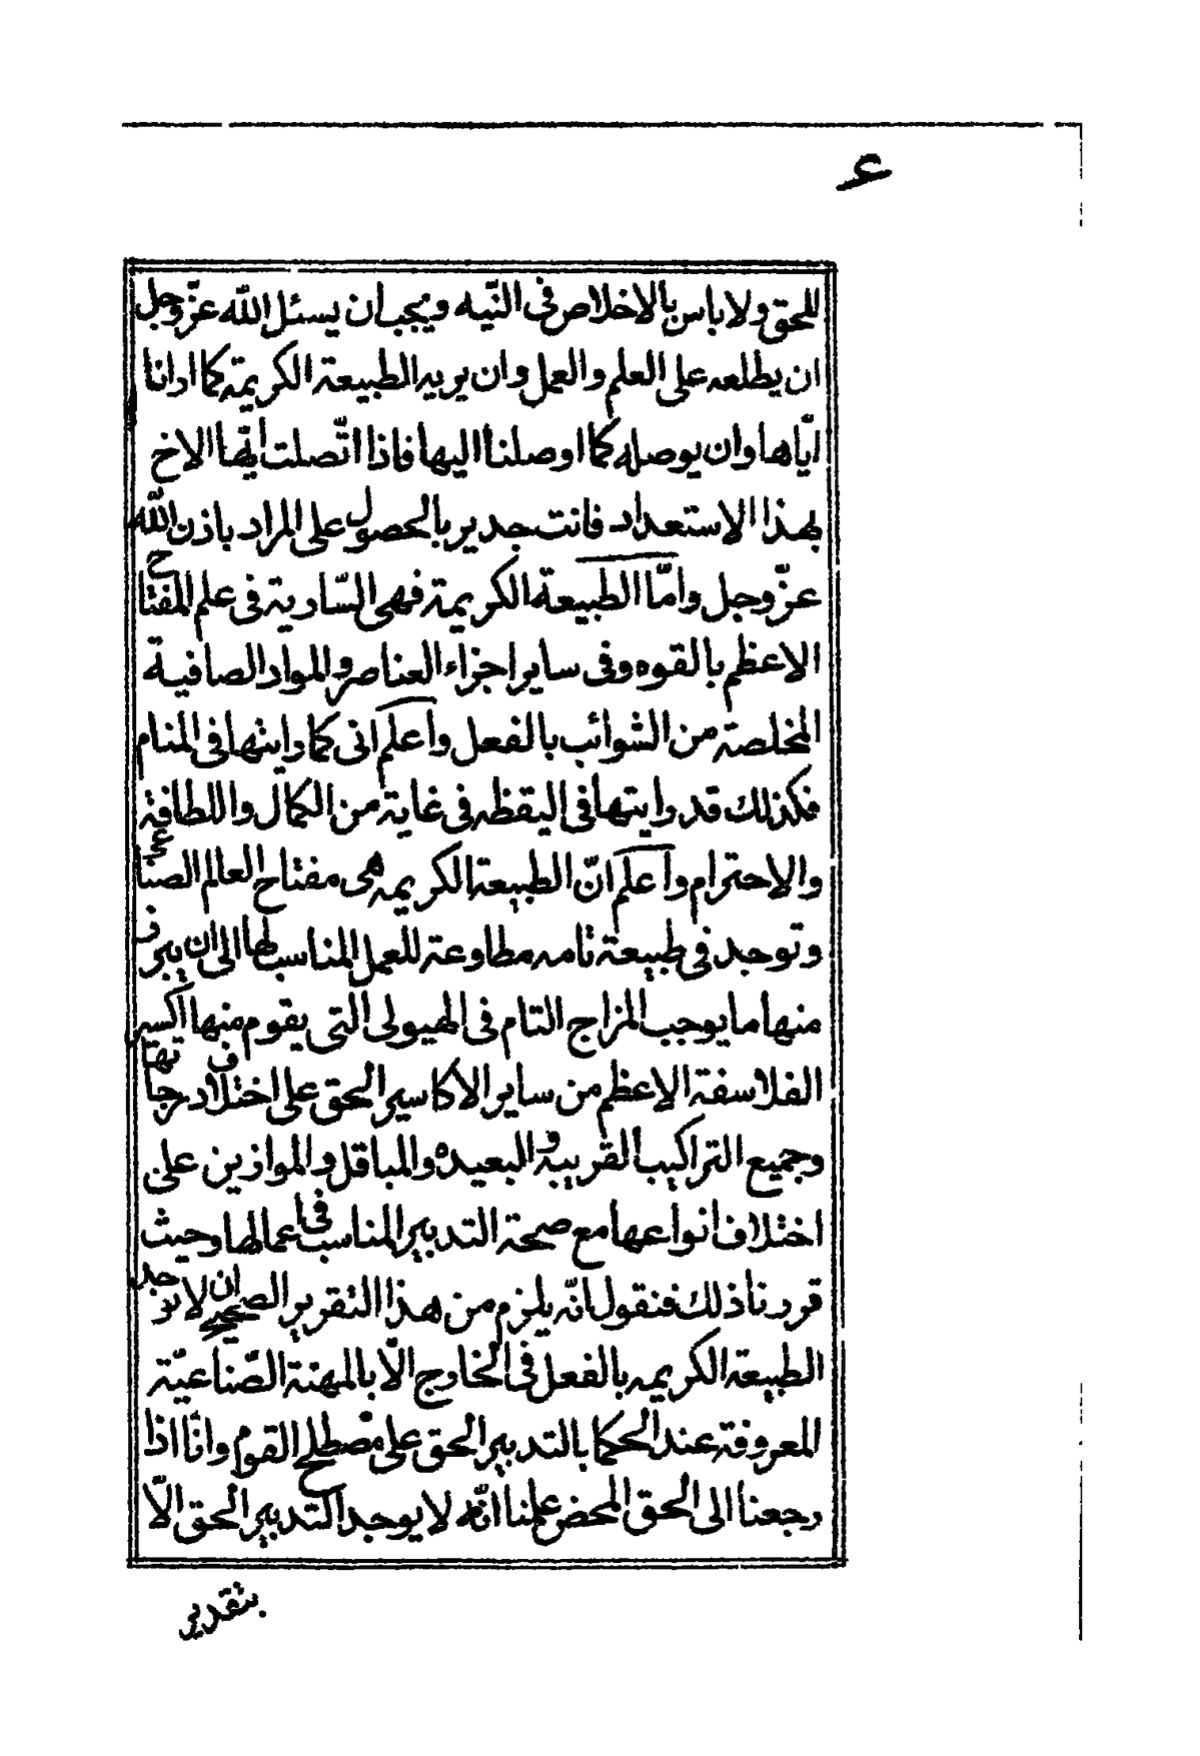 ع
للحق ولا باس بالاخلاص فى النّيه ويجب ان يسئل الله عزّ وجل
ان يطلعه على العلم والعمل وان يريه الطبيعة الكريمة كما ارانا
ايّاها وان يوصله كما اوصلنا اليها فاذا اتّصلت ايّها الاخ
بهذا الاستعداد فانت جدير بالحصول على المراد باذن الله
عزّ وجل وامّا الطبيعة الكريمة فهى السّارية فى علم المفتاح
الاعظم بالقوه وفى ساير اجزاء العناصر والمواد الصافية
المخلصة من الشوائب بالفعل واعلم انى كما رايتها فى المنام
فكذلك قد رايتها فى اليقظه فى غاية من الكمال واللطافة
والاحترام واعلم انّ الطبيعة الكريمه هى مفتاح العالم الصناعى
وتوجد فى طبيعة تامه مطاوعة للعمل المناسب لها الى ان يبرز
منها ما يوجب المزاج التام فى الهيولى التى يقوم منها اكسير
الفلاسفة الاعظم من ساير الاكاسير الحق على اختلاف درجاتها
وجميع التراكيب القريبة والبعيده والمباقل والموازين على
اختلاف انواعها مع صحة التدبير المناسب فى اعمالها وحيث
قررنا ذلك فنقول انّه يلزم من هذا التقرير الصحيح ان لا توجد
الطبيعة الكريمه بالفعل فى الخارج الّا بالمهنة الصّناعيّة
المعروفة عند الحكما بالتدبير الحق على مصطلح القوم وانّا اذا
رجعنا الى الحق المحض علمنا انّه لا يوجد التدبير الحق الّا
بتقدير